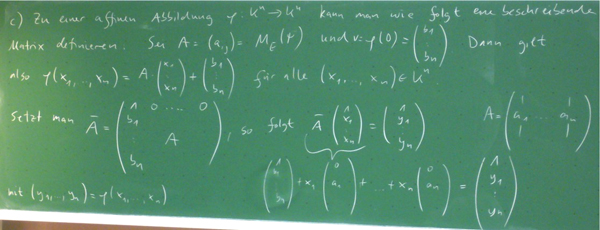 c) Zu einer affinen Abbildung φ: Kⁿ → Kⁿ kann man wie folgt eine beschreibende
Matrix definieren. Sei A = (a_ij) = M_E(f) und v = φ(0) = (b₁ ⋮ bₙ) Dann gilt
also φ(x₁, ..., xₙ) = A · (x₁ ⋮ xₙ) + (b₁ ⋮ bₙ) für alle (x₁, ..., xₙ) ∈ Kⁿ
Setzt man Ā = (1 0 ... 0 b₁ ⋮ A bₙ), so folgt Ā (1 x₁ ⋮ xₙ) = (1 y₁ ⋮ yₙ) A = (a₁ ... aₙ)
(1 b₁ ⋮ bₙ) + x₁ (0 a₁) + ... + xₙ (0 aₙ) = (1 y₁ ⋮ yₙ)
mit (y₁, ..., yₙ) = φ(x₁, ..., xₙ)